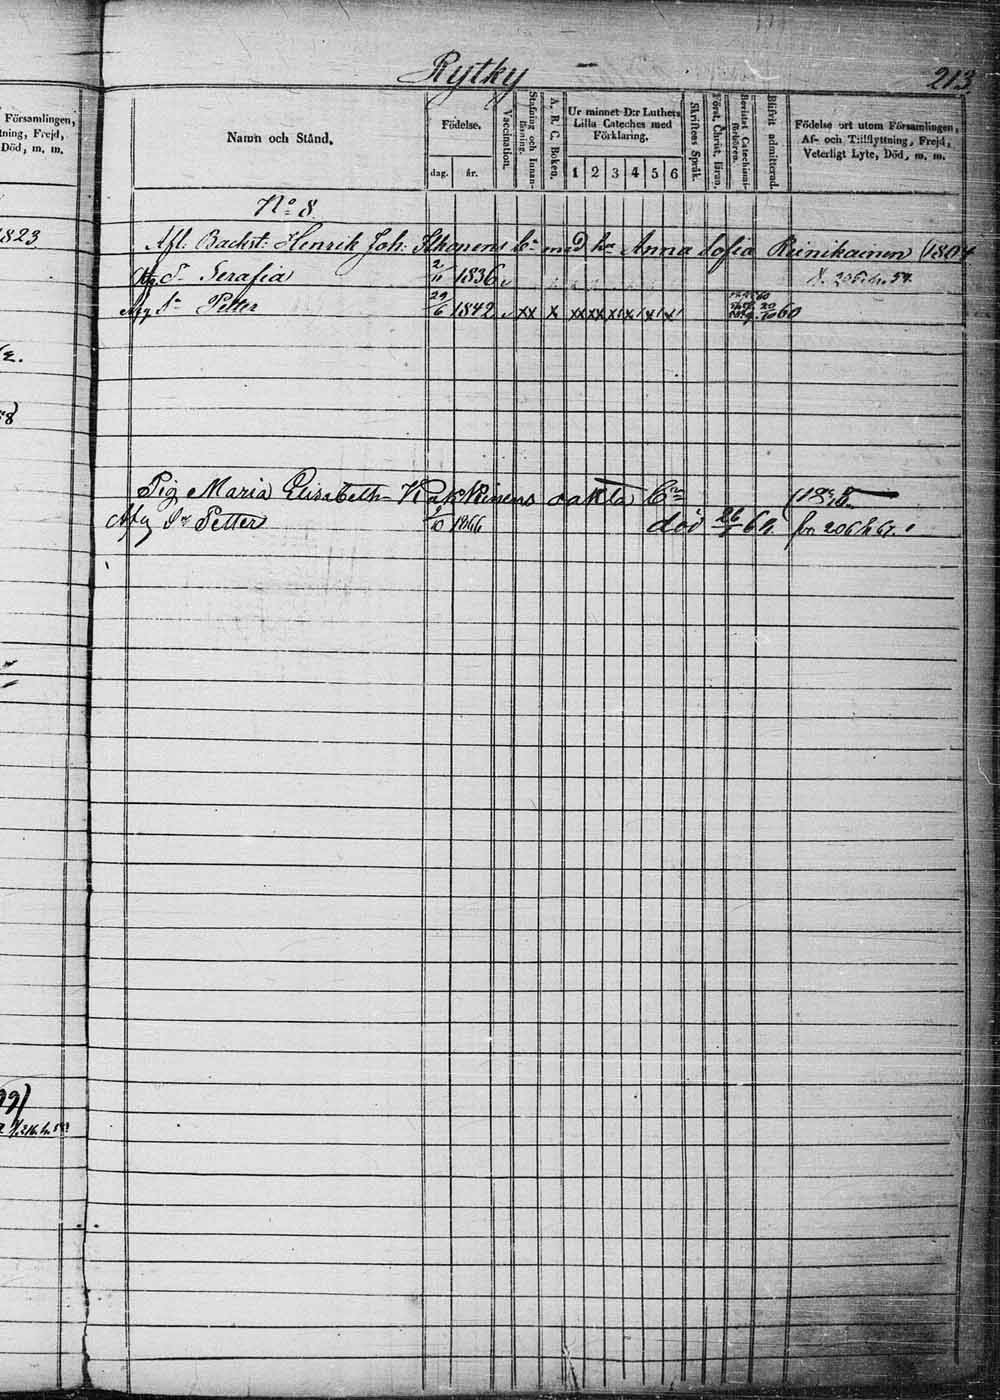 Rytky
213.
Församlingen,
tning, Frejd,
Död, m. m.
Namn och Stånd.
Födelse.
dag. år.
Vaccination.
Stafning och Innanläsning.
A. B. C. Boken.
Ur minnet D:r Luthers
Lilla Cateches med
Förklaring.
1 2 3 4 5 6
Skriftens Språk.
Först. Christ. läran.
Bevistat Catechismiförhören.
Blifvit admitterad.
Födelse ort utom Församlingen,
Af- och Tillflyttning, Frejd,
Veterligt Lyte, Död, m. m.
No 8.
1823
Afl. Backst. Henrik Joh. Ikonens bn med hu Anna Sofia Reinikainen (1804
Serafia 2/11 1836
Petter 29/6 1842 xx x xx xx x x x x 60
Pig Maria Elisabeth oäkta Bn (1838
Afg Sn Petter 10 1866 död 26 fr. 206 h 67.